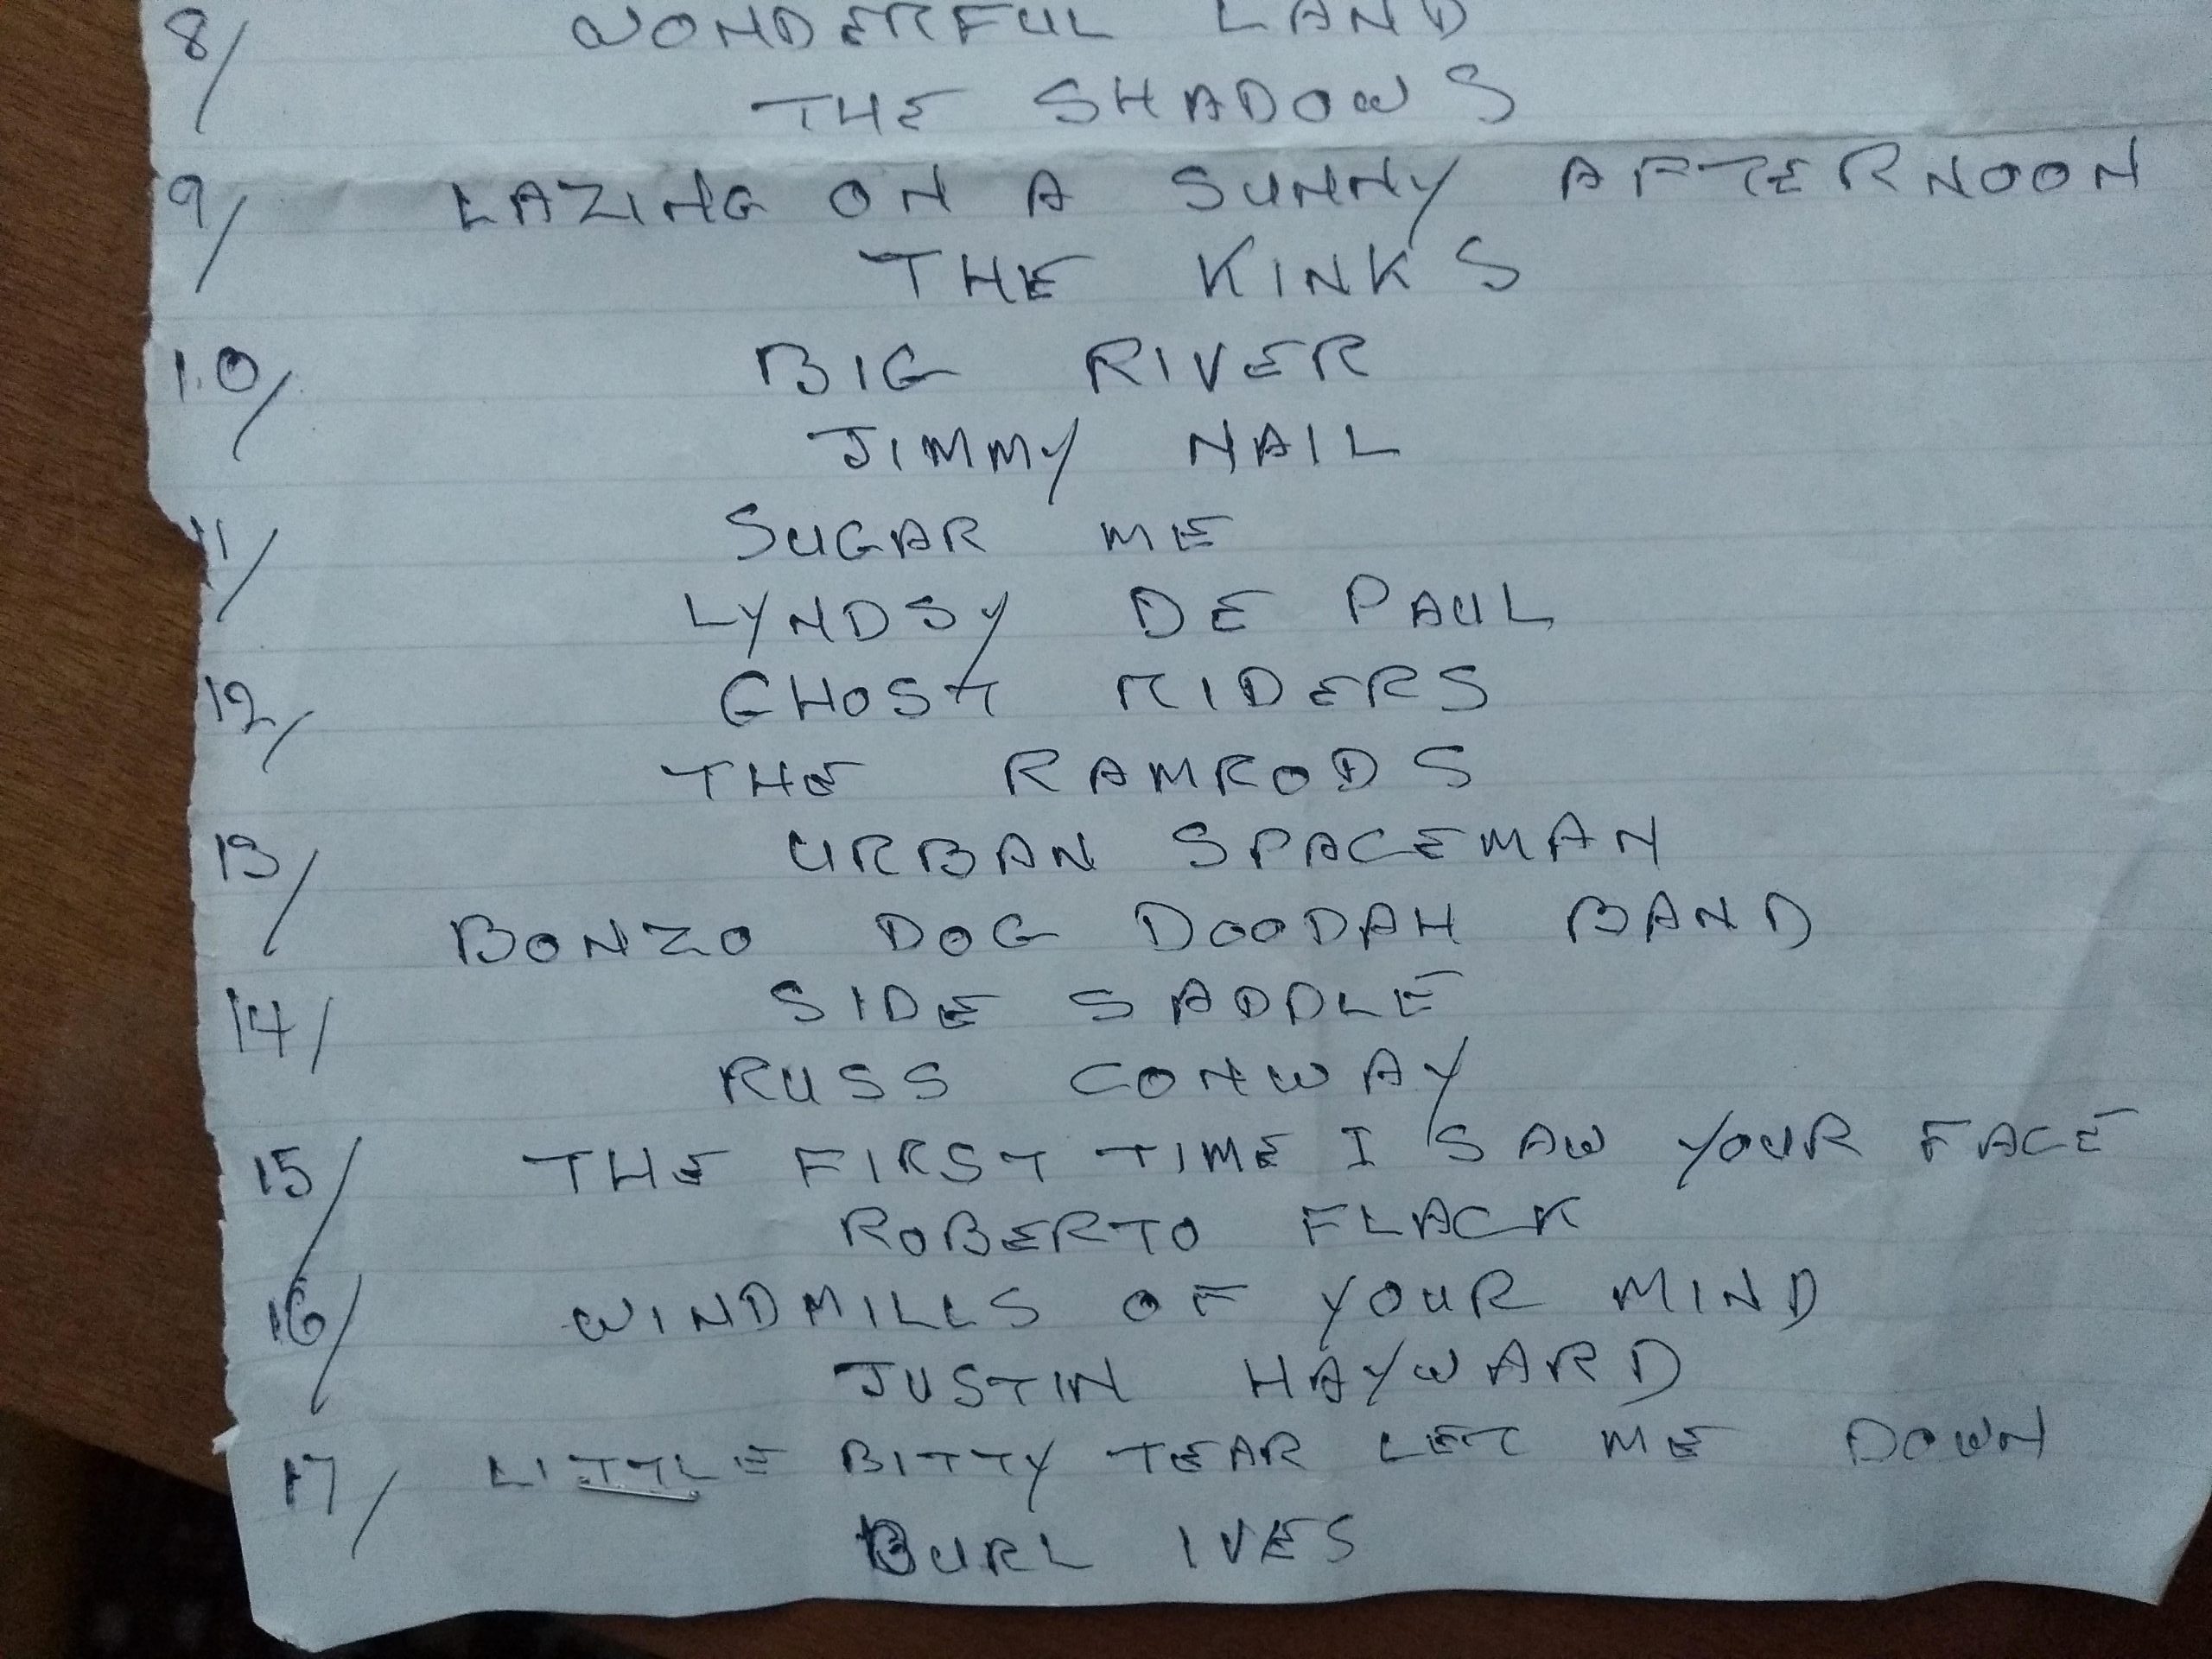 8/ WONDERFUL LAND
THE SHADOWS
9/ LAZING ON A SUNNY AFTERNOON
THE KINKS
10/ BIG RIVER
JIMMY NAIL
11/ SUGAR ME
LYNDSY DE PAUL
12/ GHOST RIDERS
THE RAMRODS
13/ URBAN SPACEMAN
BONZO DOG DOODAH BAND
14/ SIDE SADDLE
RUSS CONWAY
15/ THE FIRST TIME I SAW YOUR FACE
ROBERTO FLACK
16/ WINDMILLS OF YOUR MIND
JUSTIN HAYWARD
17/ LITTLE BITTY TEAR LET ME DOWN
BURL IVES